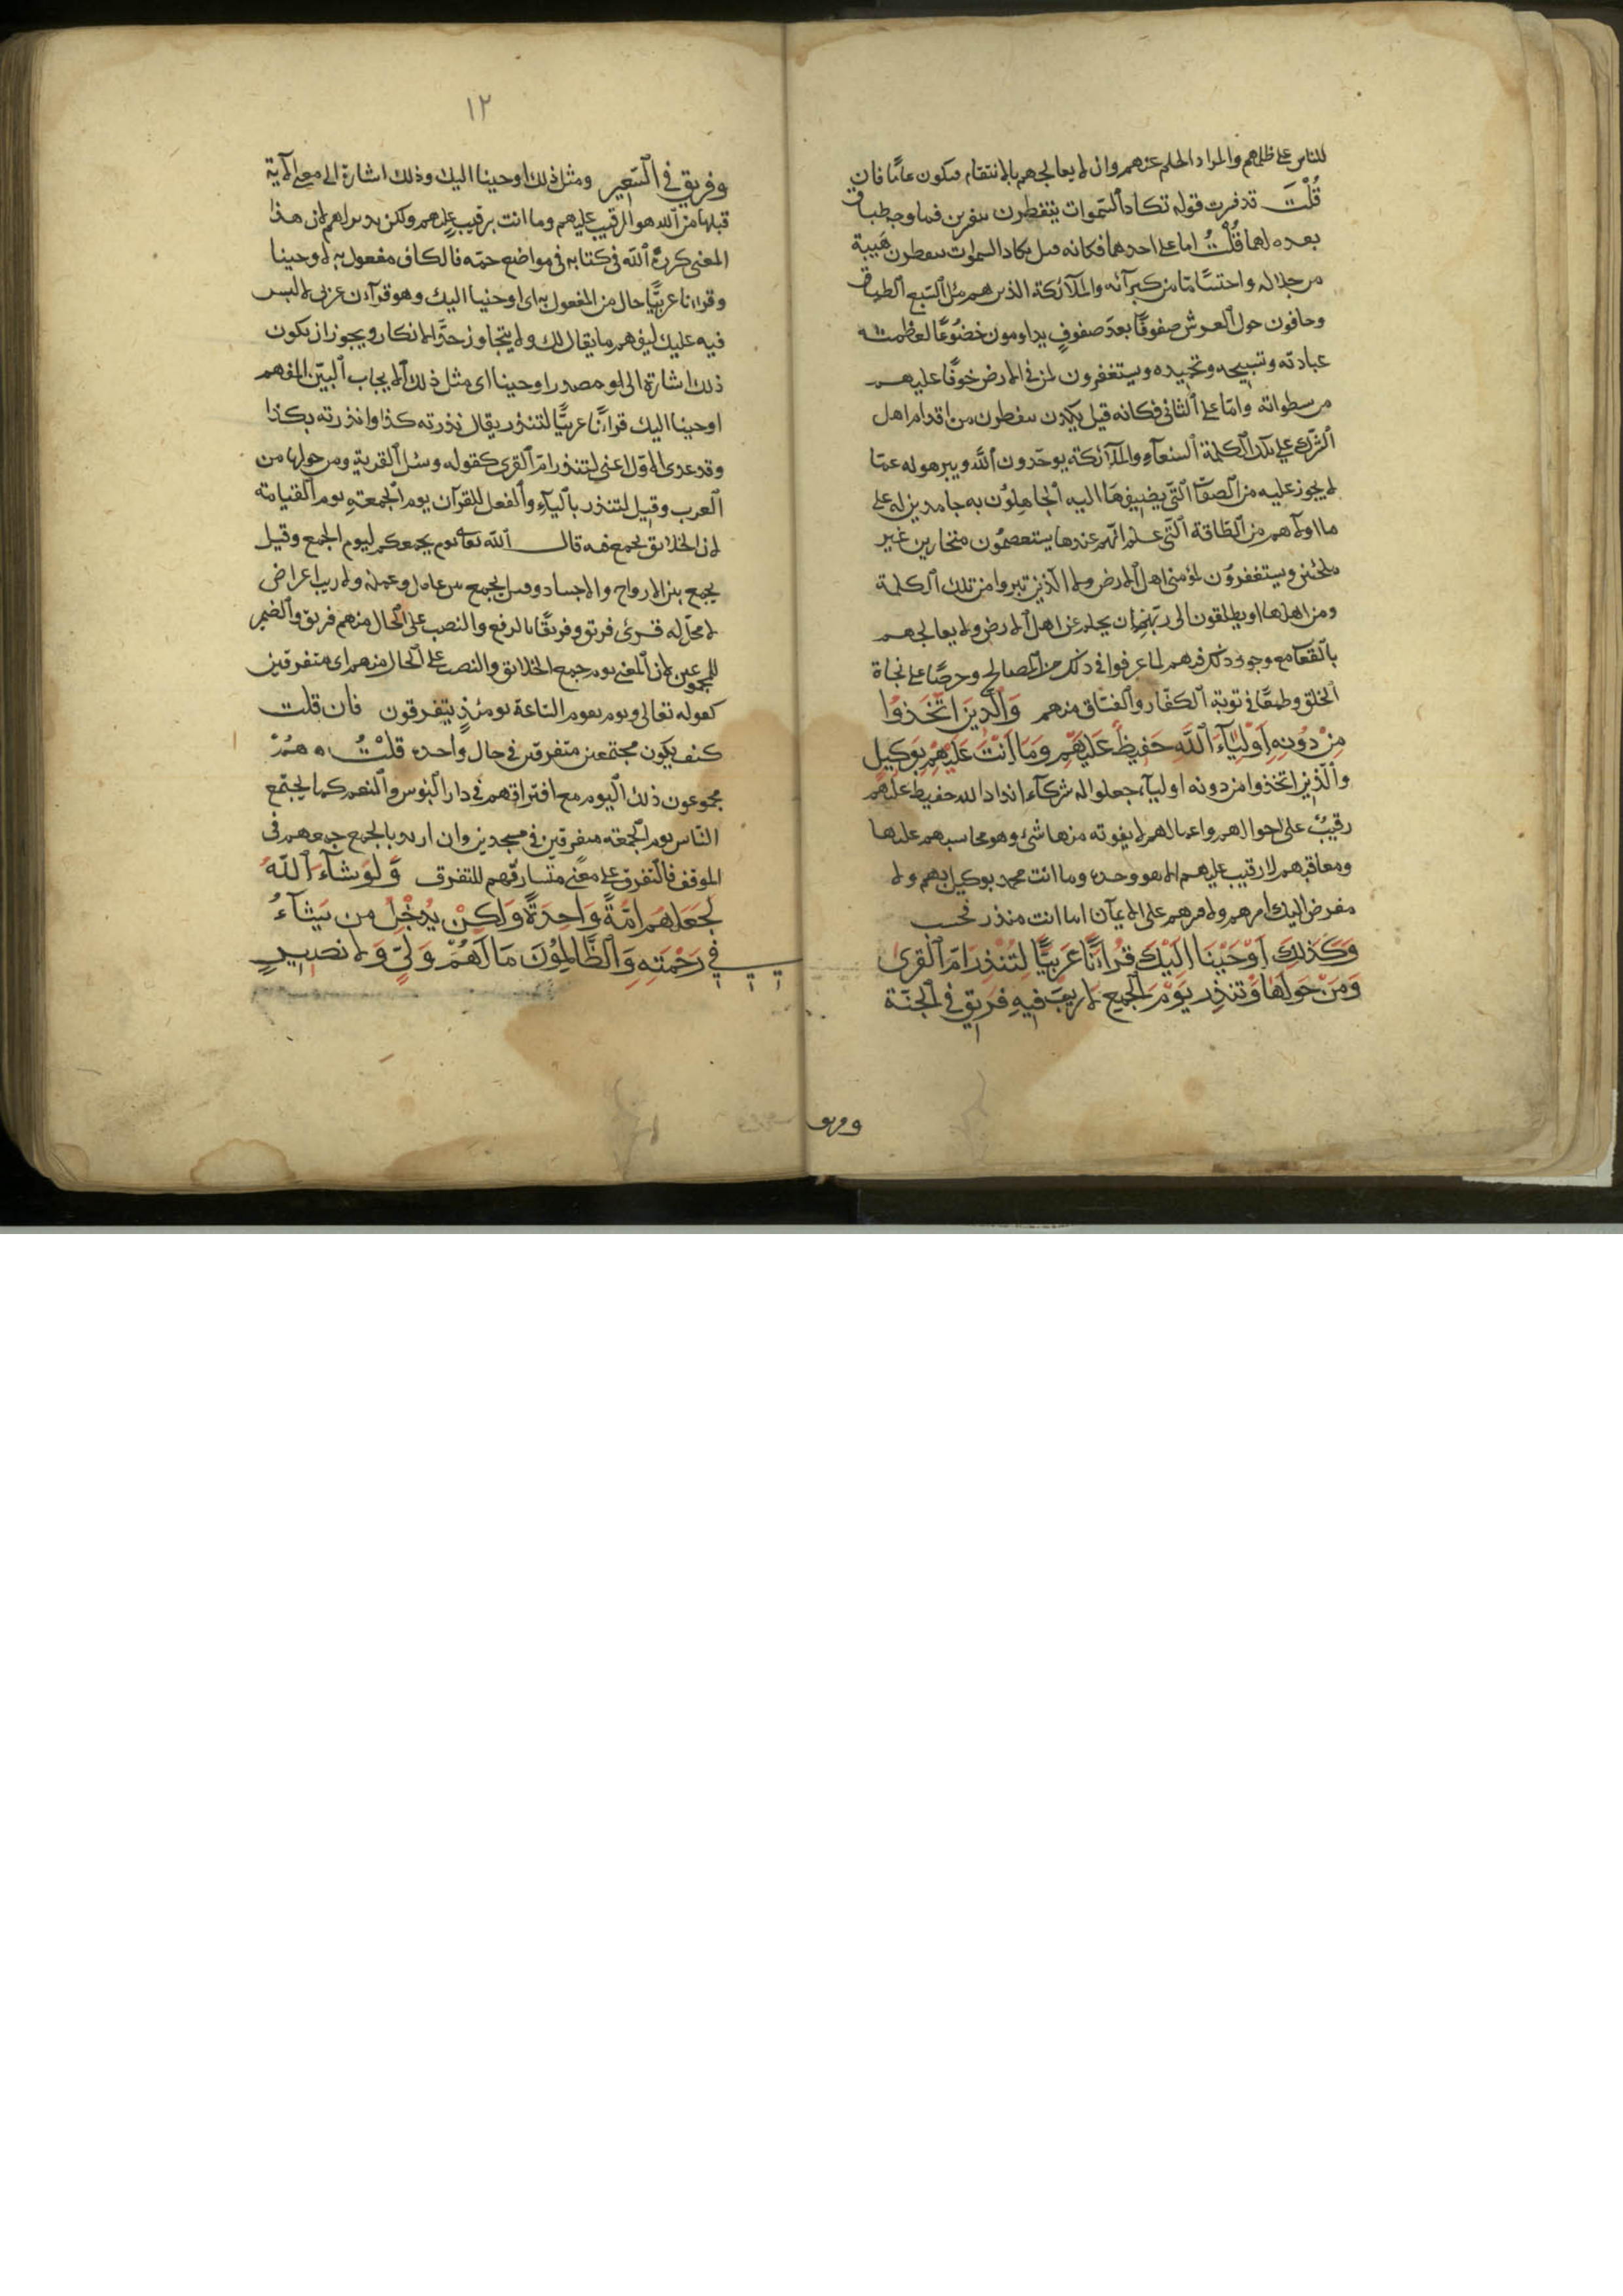 للناس على ظلمهم والمراد الحلم عنهم وان لا يعاجلهم بالانتقام فيكون عامًا فان
قُلْتَ قد فسرت قوله تكاد السموات يتفطرن تفسيرين فما وجه طباق
بعده لهما قُلْتُ اما على احدهما فكانه قيل تكاد السموات يتفطرن هيبة
من جلاله واحتشامًا من كبريائه والملائكة الذين هم ملء السبع الطباق
وحافون حول العرش صفوفًا بعد صفوف يداومون خضوعًا لعظمته
عبادته وتسبيحه وتحميده ويستغفرون لمن في الارض خوفًا عليهم
من سطواته واما على الثاني فكانه قيل يكدن يتفطرن من اقدام اهل
الشرك على تلك الكلمة الشنعآء والملآئكة يوحدون الله وينزهونه عمّا
لا يجوز عليه من الصفات التي يضيفها اليه الجاهلون به حامدين له على
ما اولاهم من الطافه التي علم انهم عندها يستعصمون مختارين غير
ملجئين ويستغفرون لمؤمني اهل الارض الذين تبروا من تلك الكلمة
ومن اهلها او يطلبون الى ربهم ان يحلم عن اهل الارض ولا يعاجلهم
مع وجود ذلك فيهم لما عرفوا في ذلك من المصالح وحرصًا على نجاة
الخلق وطمعًا في توبة الكفّار والفسّاق منهم وَالَّذِينَ اتَّخَذُوا
مِنْ دُونِهِ اَوْلِيَآءَ اللَّه حَفِيظٌ عَلَيْهِمْ وَمَا اَنْتَ عَلَيْهِمْ بِوَكِيل
والّذين اتخذوا من دونه اوليآء جعلوا له شركآء اندادا الله حفيظ عليهم
رقيبٌ على احوالهم واعمالهم لا يفوته منها شئ وهو محاسبهم عليها
ومعاقبهم لا رقيب عليهم الا هو وحده وما انت محمد بوكيل بهم ولا
مفوض اليك امرهم ولا قسرهم على الايمان انما انت منذر فحسب
وَكَذلِكَ اَوْحَيْنَا اِلَيْكَ قُرْاٰنًا عَرَبِيًّا لِتُنْذِرَ اُمَّ الْقُرىٰ
وَمَنْ حَوْلَهَا وَتُنْذِرَ يَوْمَ الْجَمْعِ لا رَيْبَ فِيهِ فَرِيقٌ فِي الْجَنَّة
وفريق
١٢
وفريق في السَّعِير ومثل ذلك اوحينا اليك وذلك اشارة الى معنى الآية
قبلها من ان الله هو الرقيب عليهم وما انت برقيب عليهم ولكن نذير لهم لان هذا
المعنى كرره الله في كتابه في مواضع جمة فالكاف مفعول به لاوحينا
وقرآنا عربيًّا حال من المفعول به اى اوحيناه اليك وهو قرآن عربي لا لبس
فيه عليك لتفهم ما يقال لك ولا يتجاوز حدّ الانذار ويجوز ان يكون
ذلك اشارة الى مصدر اوحينا اى مثل ذلك الايحاء البيّن المفهم
اوحينا اليك قرآنًا عربيًّا لتنذر يقال نذرته كذا وانذرته بكذا
وقد عدى الاول اعني لتنذر ام القرى كقوله وسئل القرية ومن حولها من
العرب وقيل لتنذر باليآء والفعل للقرآن يوم الجمعة يوم القيامة
لان الخلائق تجمع فيه قال الله تعالى يوم يجمعكم ليوم الجمع وقيل
يجمع بين الارواح والاجساد وقيل يجمع بين عامل وعمله ولا ريب اعتراض
لا محل له قرئ فريق وفريقًا بالرفع والنصب على الحال منهم فريق والضمير
للمجموعين لان المعنى يوم جمع الخلائق والنصب على الحال منهم اى متفرقين
كقوله تعالى ويوم تقوم الساعة يومئذٍ يتفرقون فان قلت
كيف يكون مجتمعين متفرقين في حال واحدة قلْتُ هُمْ
مجموعون ذلك اليوم مع افتراقهم في دار البؤس والنعيم كما يجتمع
النّاس يوم الجمعة متفرقين في مسجدين وان اريد بالجمع جمعهم في
الموقف فالتفرق على معنى مشارفتهم للتفرق وَلَوْ شَآءَ اللَّهُ
لَجَعَلَهُمْ اُمَّةً وَاحِدَةً وَلَكِنْ يُدْخِلُ مَن يَشَآءُ
فِي رَحْمَتِهِ وَالظَّالِمُونَ مَا لَهُمْ مّن وَلِيٍّ وَلا نصِيرٍ